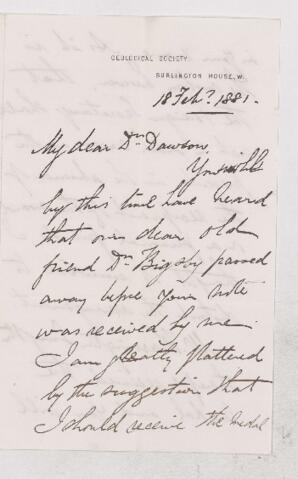 GEOLOGICAL SOCIETY
BURLINGTON HOUSE, W.
18 Feby. 1881.
My dear Dr. Dawson,
You will
by this time have heard
that our dear old
friend Dr. Bigsby passed
away before your note
was received by me.
I am greatly flattered
by the suggestion that
I should receive the medal